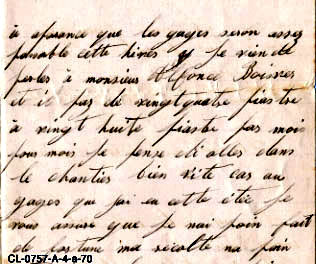 à aparance que les gages seron asser
paisable cette hiver y je vien de
perler à monsieur Alfonce Boisver
et il paz de vingtquatre piastre
à vingt huite piastre par mois
pour mois je pense d'aller dans
le chantier bien vite car au
gages que jai eu cette été je
vous assure que je nai poin fait
de fortune ma récolte na poin
CL-0757-A-4-a-70